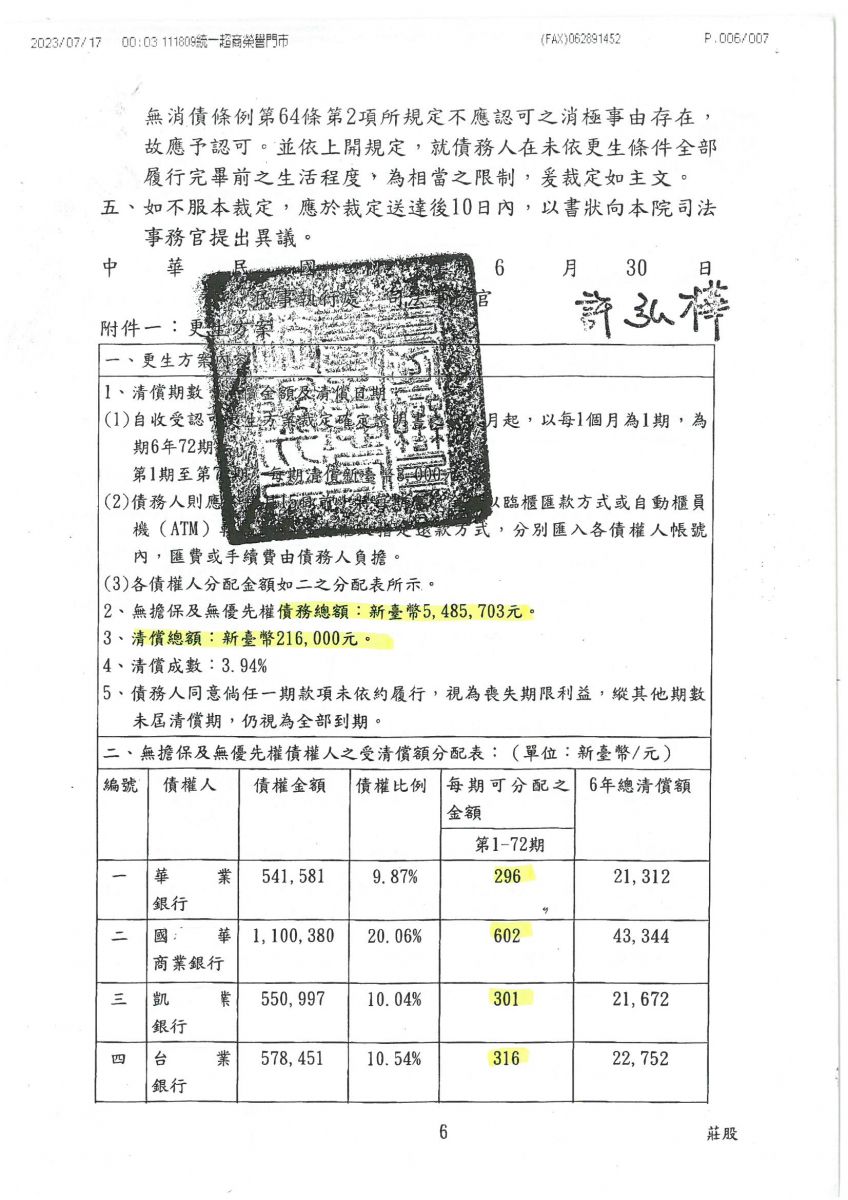 2023/07/17 00:03 111809統一超商榮譽門市 (FAX)062891452 P.006/007
無消債條例第64條第2項所規定不應認可之消極事由存在，
故應予認可。並依上開規定，就債務人在未依更生條件全部
履行完畢前之生活程度，為相當之限制，爰裁定如主文。
五、如不服本裁定，應於裁定送達後10日內，以書狀向本院司法
事務官提出異議。
中 華 民 國 6 月 30 日
民事執行處 司法事 官 許弘樺
附件一：更生方案
一、更生方案
1、清償期數 金額及清償日期
(1)自收受認可更生方案裁定確定證明書 月起，以每1個月為1期，為
期6年72期
第1期至第7 每期清償新臺幣3,000
(2)債務人則應 15 前 以臨櫃匯款方式或自動櫃員
機（ATM） 人指定還款方式，分別匯入各債權人帳號
內，匯費或手續費由債務人負擔。
(3)各債權人分配金額如二之分配表所示。
2、無擔保及無優先權債務總額：新臺幣5,485,703元。
3、清償總額：新臺幣216,000元。
4、清償成數：3.94%
5、債務人同意倘任一期款項未依約履行，視為喪失期限利益，縱其他期數
未屆清償期，仍視為全部到期。
二、無擔保及無優先權債權人之受清償額分配表：（單位：新臺幣/元）
編號 債權人 債權金額 債權比例 每期可分配之 6年總清償額
金額
第1-72期
一 華 業 541,581 9.87% 296 21,312
銀行
二 國 華 1,100,380 20.06% 602 43,344
商業銀行
三 凱 業 550,997 10.04% 301 21,672
銀行
四 台 業 578,451 10.54% 316 22,752
銀行
6 莊股